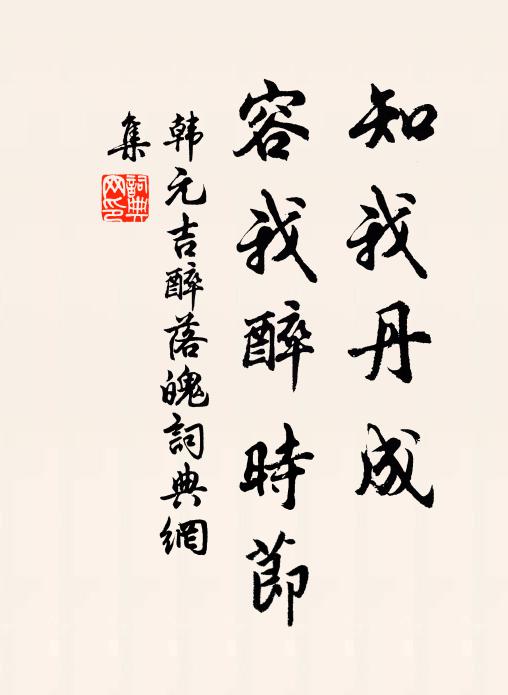 知我丹成
容我醉時節
韩元吉醉落魄詞典網
集
詞典網印